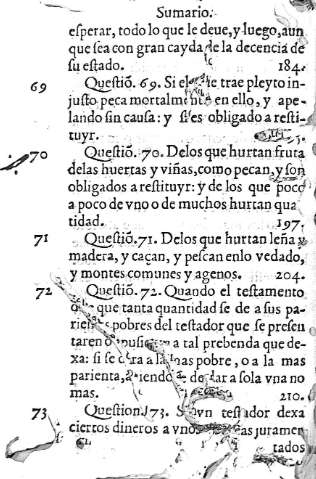 Sumario.
esperar, todo lo que le deue, y luego, aun
que sea con gran cayda de la decencia de
su estado. 184.
69 Questiõ. 69. Si el que trae pleyto in-
justo peca mortalmente en ello, y ape-
lando sin causa: y si es obligado a resti-
tuyr.
70 Questiõ. 70. Delos que hurtan fruta
delas huertas y viñas, como pecan, y son
obligados a restituyr: y de los que poco
a poco de vno o de muchos hurtan qua
tidad. 197.
71 Questiõ. 71. Delos que hurtan leña y
madera, y caçan, y pescan enlo vedado,
y montes comunes y agenos. 204.
72 Questiõ. 72. Quando el testamento
que tanta quantidad se de a sus pa-
rientes pobres del testador que se presen
taren o a tal prebenda que de-
xa: si se dara a la mas pobre, o a la mas
parienta, auiendo de dar a sola vna no
mas. 210.
73 Question. 73. Si vn testador dexa
ciertos dineros a vnos juramen
tados